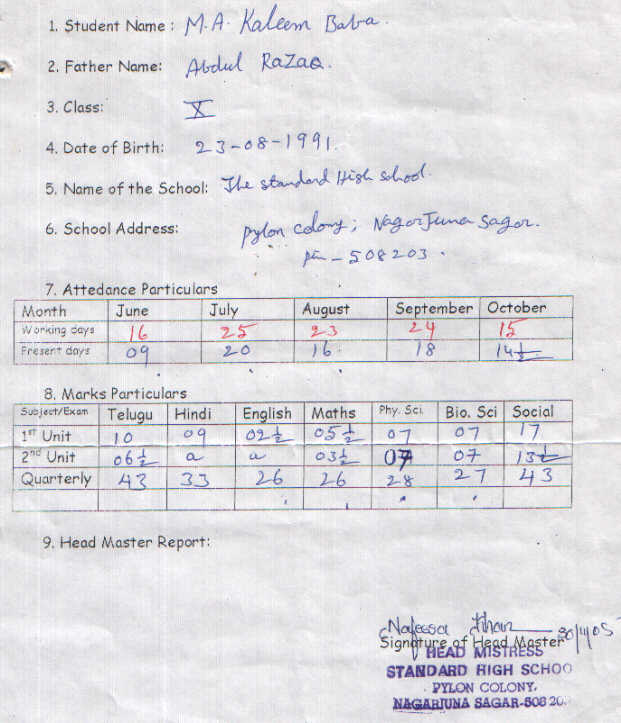 1. Student Name : M.A. Kaleem Baba.
2. Father Name: Abdul RaZaq.
3. Class: X
4. Date of Birth: 23-08-1991.
5. Name of the School: The standard High school.
6. School Address: pylon colony; NagarJuna Sagar.
pin - 508203.
7. Attedance Particulars
Month June July August September October
Working days 16 25 23 24 15
Present days 09 20 16. 18 14½
8. Marks Particulars
Subject/Exam Telugu Hindi English Maths Phy. Sci. Bio. Sci Social
1st Unit 10 09 02½ 05½ 07 07 17
2nd Unit 06½ a a 03½ 07 07 13½
Quarterly 43 33 26 26 28 27 43
9. Head Master Report:
Nafeesa Khan
Signature of Head Master 30/11/05
HEAD MISTRESS
STANDARD HIGH SCHOO
PYLON COLONY,
NAGARJUNA SAGAR-508 20